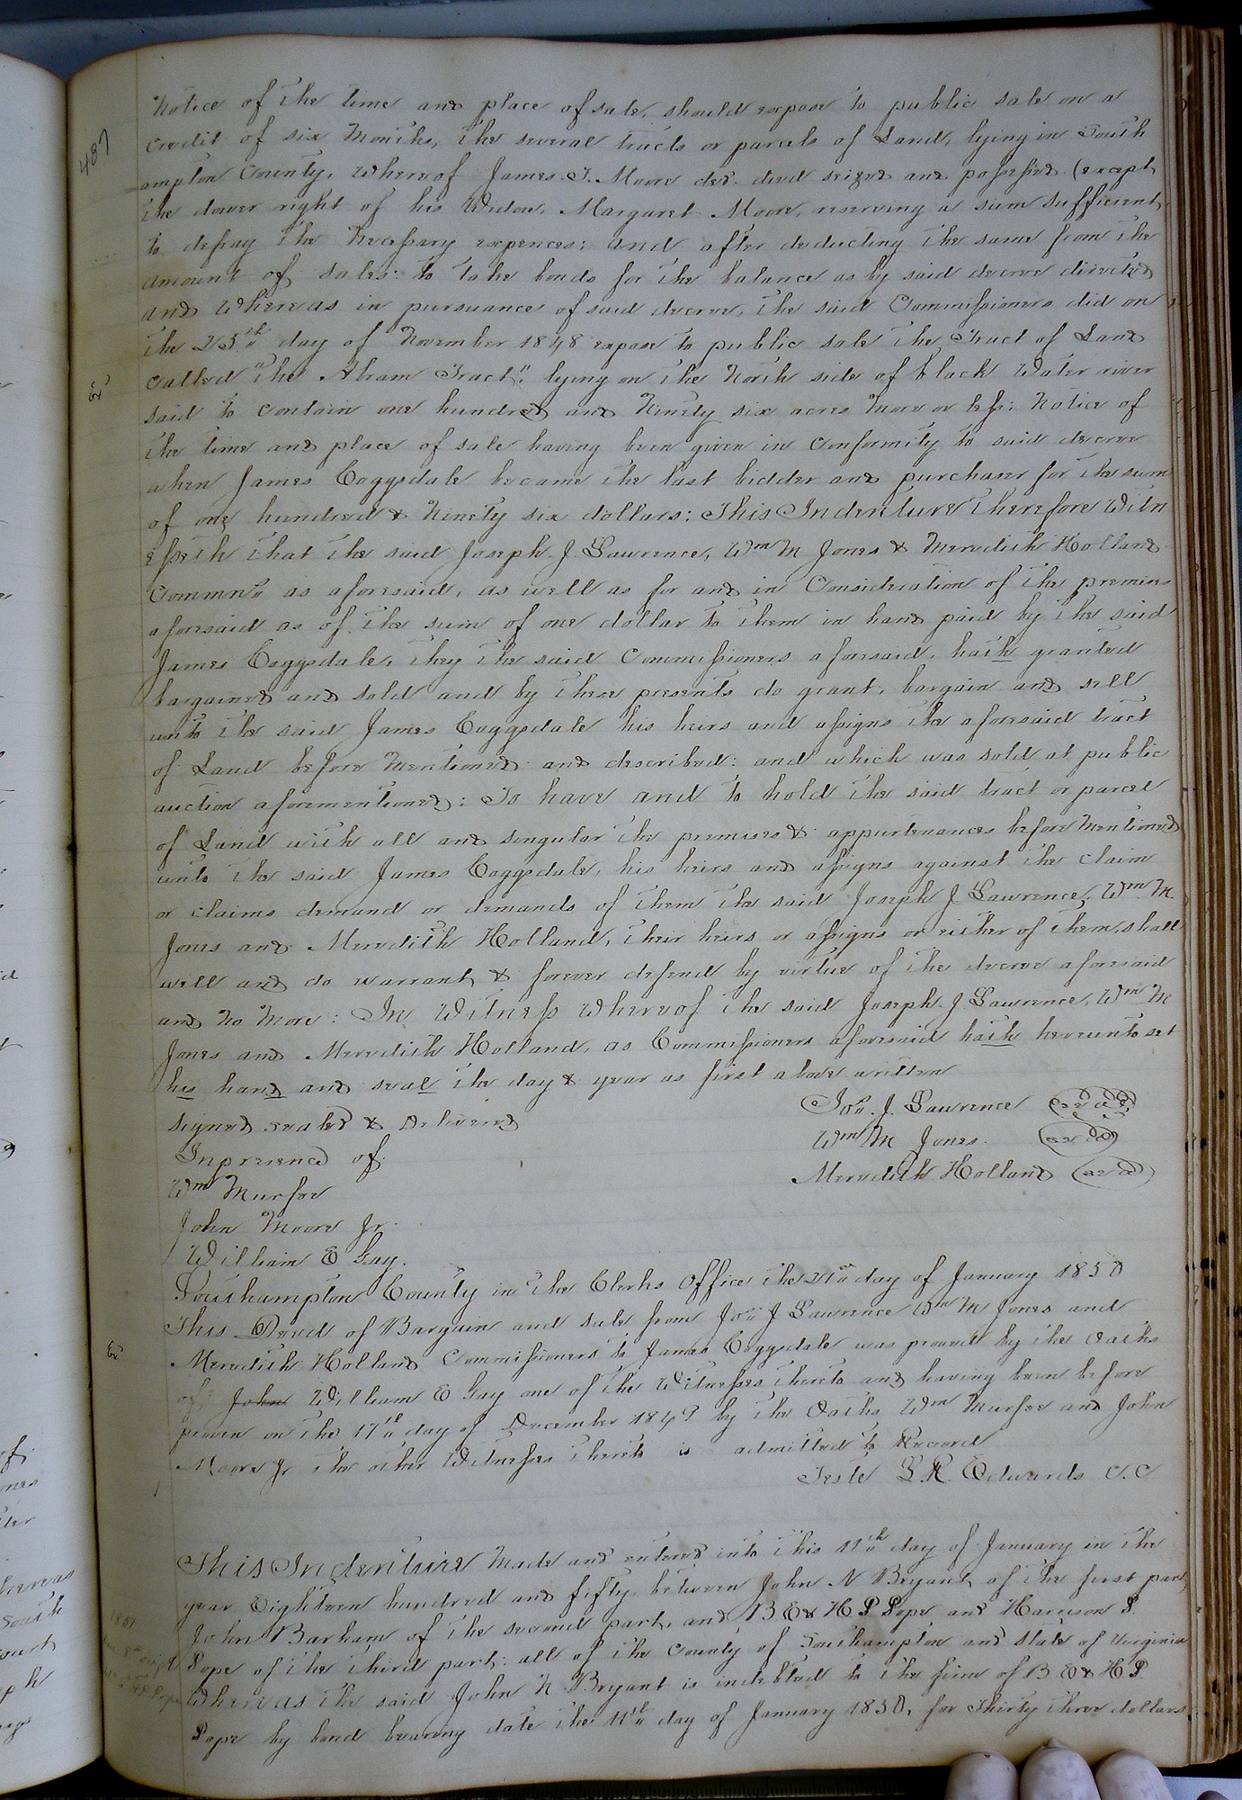 487
Notice of the time and place of sale, should expose to public sale on a
credit of six Months, the several tracts or parcels of Land, lying in South
ampton County, whereof James J. Moore decd. died seized and possessed (except
the dower right of his Widow, Margaret Moore, reserving a sum sufficient
to defray the Necessary expences: and after deducting the same from the
amount of sales: to take bonds for the balance as by said decree directed
and whereas in pursuance of said decree, the said Commissioners did on
the 25th day of November 1848 expose to public sale the Tract of Land
called "the Abram Tract" lying on the North side of black Water river
said to contain one hundred and Ninety six acres More or less: Notice of
the time and place of sale having been given in Conformity to said decree
when James Coggsdale became the last bidder and purchaser for the sum
of one hundred & Ninety six dollars: This Indenture Therefore Witn
esseth that the said Joseph J Lawrence, Wm M Jones & Meredith Holland
Commrs as aforesaid, as well as for and in Consideration of the premises
aforesaid as of the sum of one dollar to them in hand paid by the said
James Coggsdale, they the said Commissioners aforesaid, hath granted
bargained and sold and by these presents do grant, bargain and sell
unto the said James Coggsdale his heirs and assigns the aforesaid tract
of Land before Mentioned and described: and which was sold at public
auction aforementioned: To have and to hold the said tract or parcel
of Land with all and singular the premises & appurtenances before Mentioned
unto the said James Coggsdale, his heirs and assigns against the claim
or claims demand or demands of them the said Joseph J Lawrence, Wm M.
Jones and Meredith Holland, their heirs or assigns or either of them, shall
will and do warrant & forever defend by virtue of the decree aforesaid
and No More: In Witness Whereof the said Joseph J Lawrence, Wm M
Jones and Meredith Holland, as Commissioners aforesaid hath hereunto set
his hand and seal the day & year as first above written
Signed sealed & Delivered
Inpresence of
Wm Murfee
John Moore Jr.
William E Gay.
Jos. J. Lawrence (seal)
Wm M Jones. (seal)
Meredith Holland (seal)
Southampton County in the Clerks Office the 21st day of January 1850
This Deed of Bargain and Sale from Jos J Lawrence Wm M Jones and
Meredith Holland Commissioners to James Coggsdale was proved by the Oaths
of John William E Gay one of the Witnesses thereto and having been before
proven on the 17th day of December 1849 by the Oaths Wm Murfee and John
Moore Jr the other Witnesses thereto is admitted to Record
Teste L R Edwards C.C
This Indenture Made and entered into this 11th day of January in the
year Eighteen hundred and fifty between John N Bryant, of the first part
John Barham of the second part, and B E & H P Pope and Harrison P.
Pope of the third part: all of the County of Southampton and state of Virginia
Whereas the said John N Bryant is indebted to the firm of B E & H P
Pope by bond bearing date the 11th day of January 1850, for Thirty three dollars